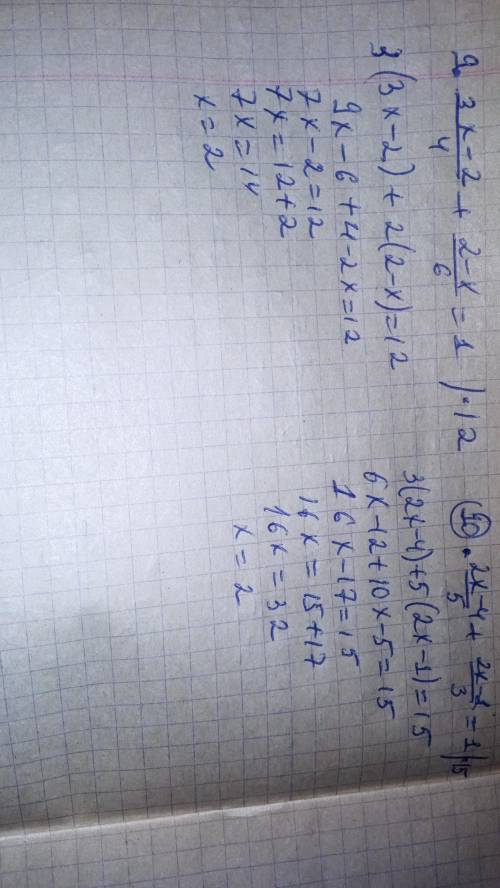 9. (3x-2)/4 + (2-x)/6 = 1 |·12
3(3x-2)+2(2-x)=12
9x-6+4-2x=12
7x-2=12
7x=12+2
7x=14
x=2
10. (2x-4)/5 + (2x-1)/3 = 1 |·15
3(2x-4)+5(2x-1)=15
6x-12+10x-5=15
16x-17=15
16x=15+17
16x=32
x=2